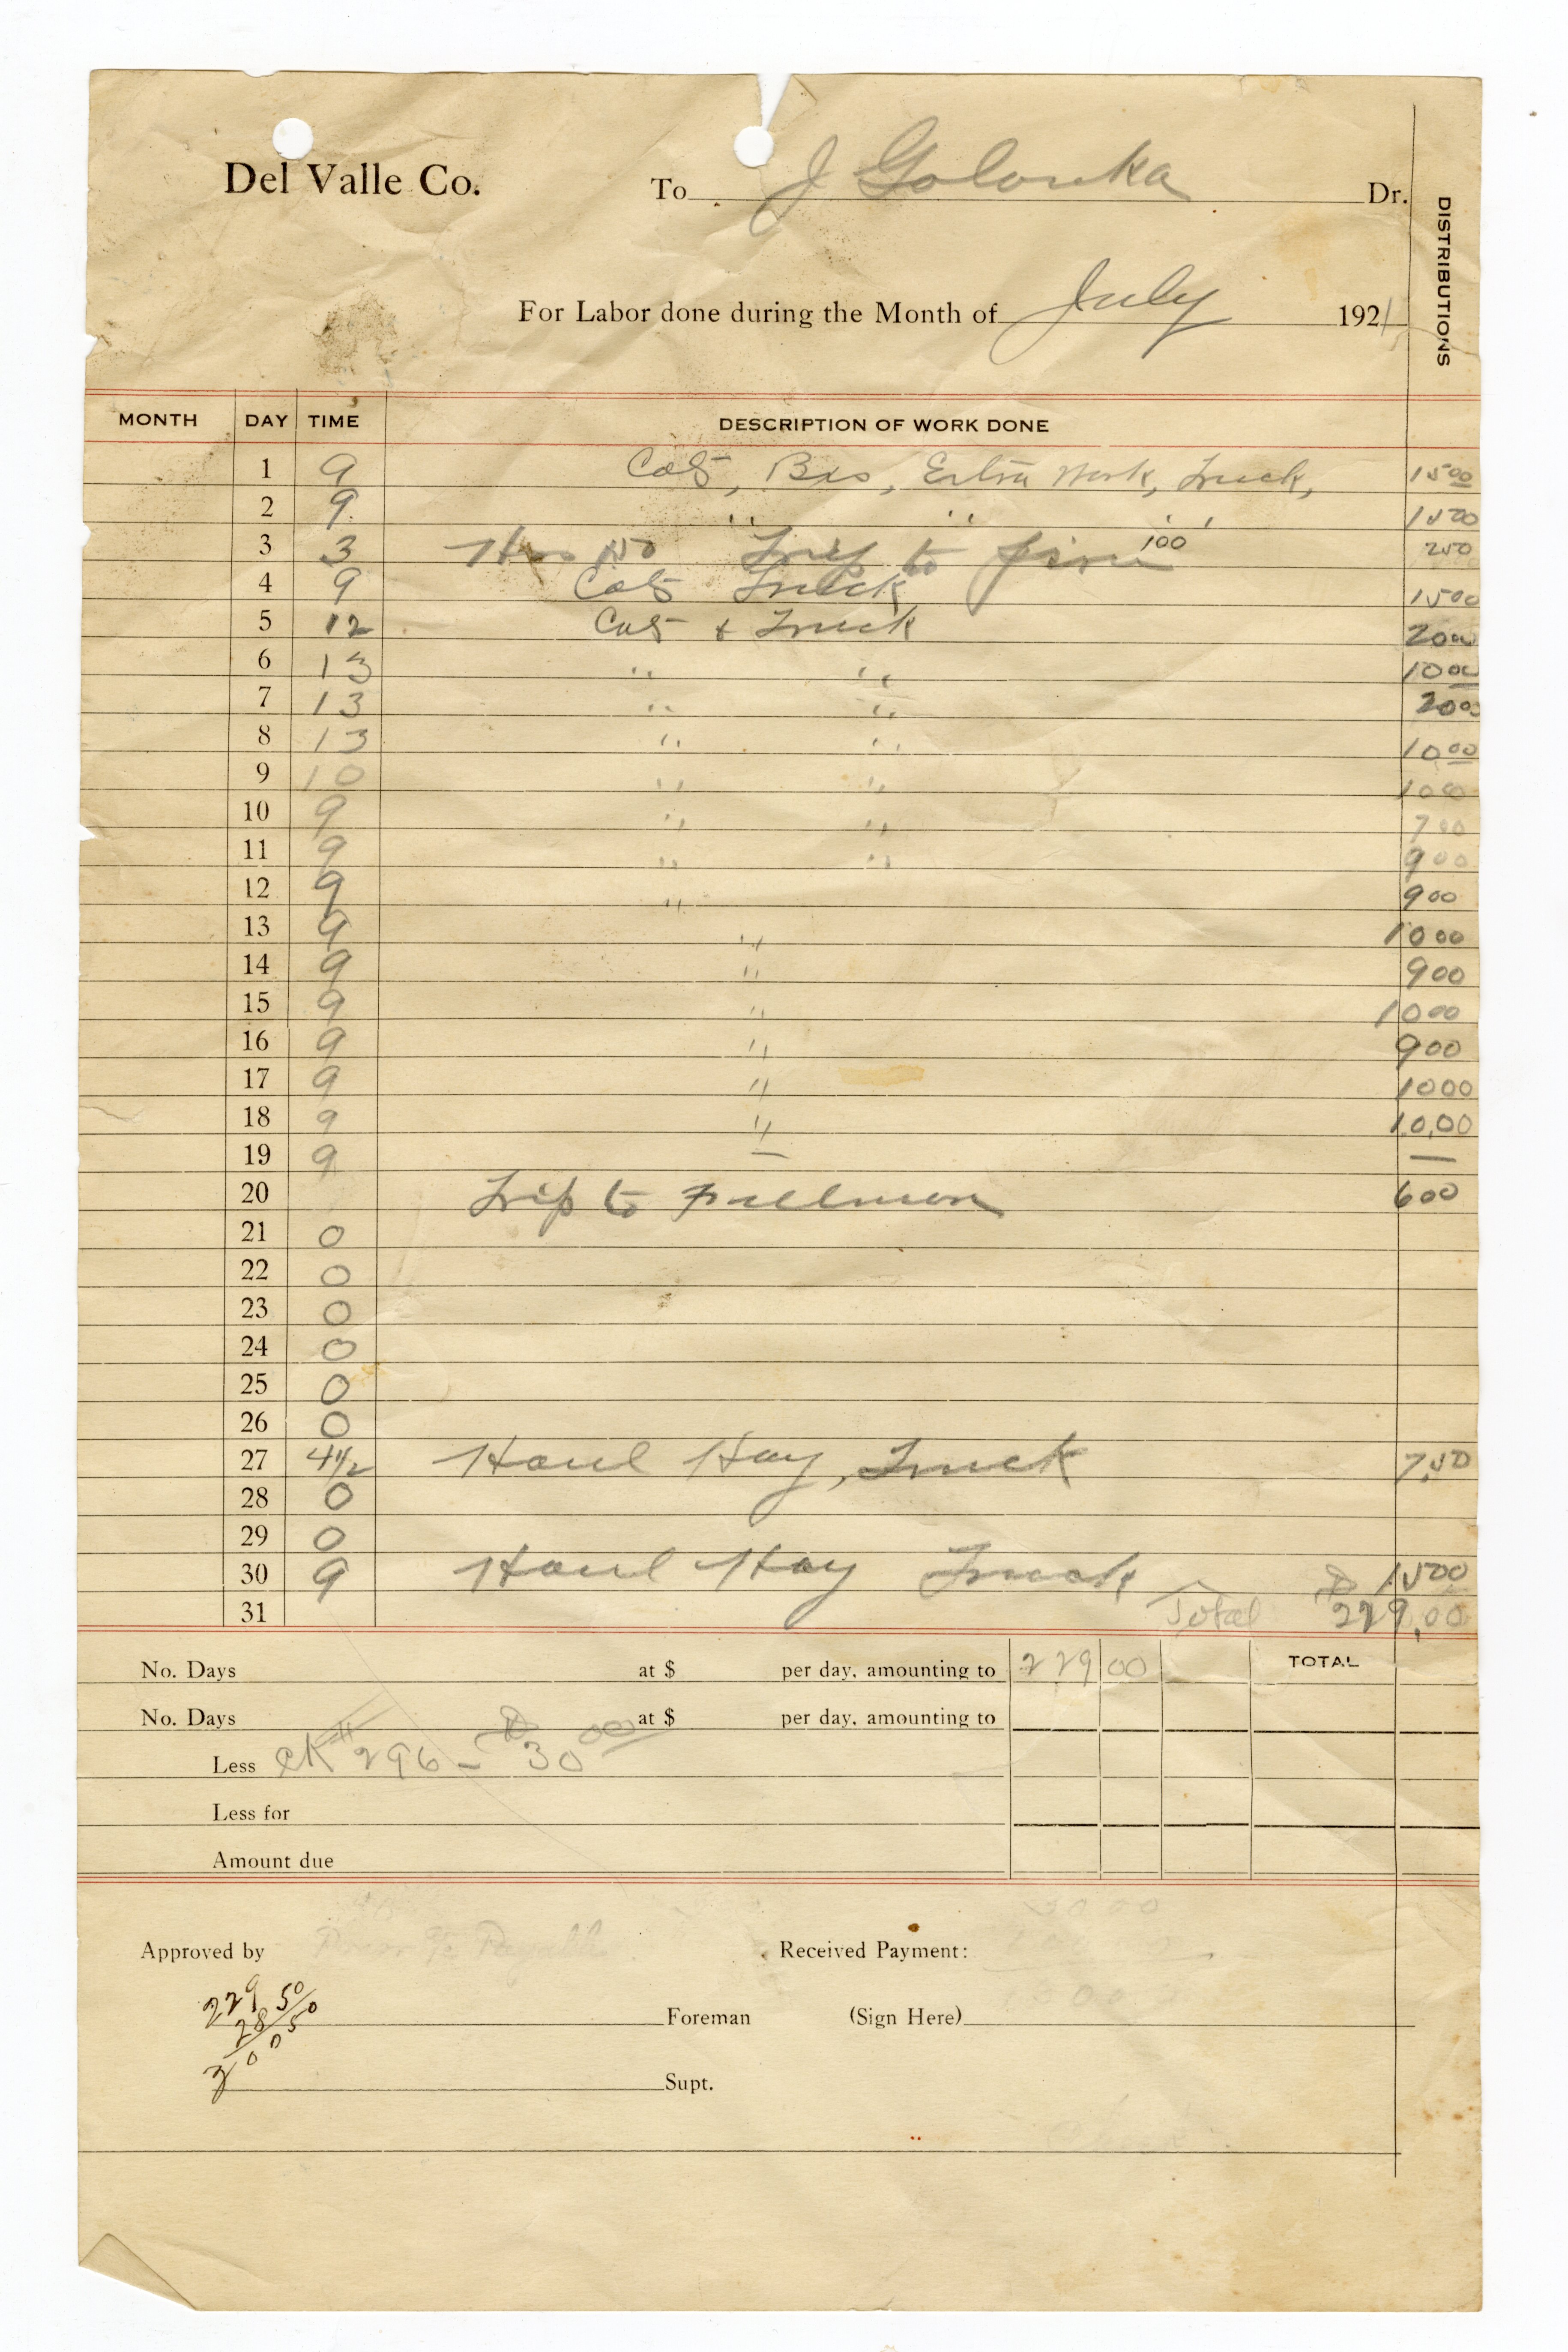 Del Valle Co. To J Golonka Dr.
DISTRIBUTIONS
For Labor done during the Month of July 1921
MONTH DAY TIME DESCRIPTION OF WORK DONE
1 9 Cats, Bxs, Extra Work, Truck, 15 00
2 9 " " " 15 00
3 3 Hrs 1 50 Trip to 100 2 50
4 9 Cats Truck 15 00
5 12 Cats & Truck 20 00
6 13 " " 10 00
7 13 " " 20 00
8 13 " " 10 00
9 10 " " 10 00
10 9 " " 7 00
11 9 " " 9 00
12 9 " 9 00
13 9 " 10 00
14 9 " 9 00
15 9 " 10 00
16 9 " 9 00
17 9 " 10 00
18 9 " 10,00
19 9 — —
20 Trip to Fullmon 6 00
21 0
22 0
23 0
24 0
25 0
26 0
27 4 1/2 Haul Hay, Truck 7.50
28 0
29 0
30 9 Haul Hay Truck $ 15 00
31 Total 229.00
No. Days at $ per day, amounting to 229 00 TOTAL
No. Days at $ per day, amounting to
Less CK # 296 - $ 30 00
Less for
Amount due
Approved by Received Payment:
229 50
28 50
Foreman (Sign Here)
Supt.